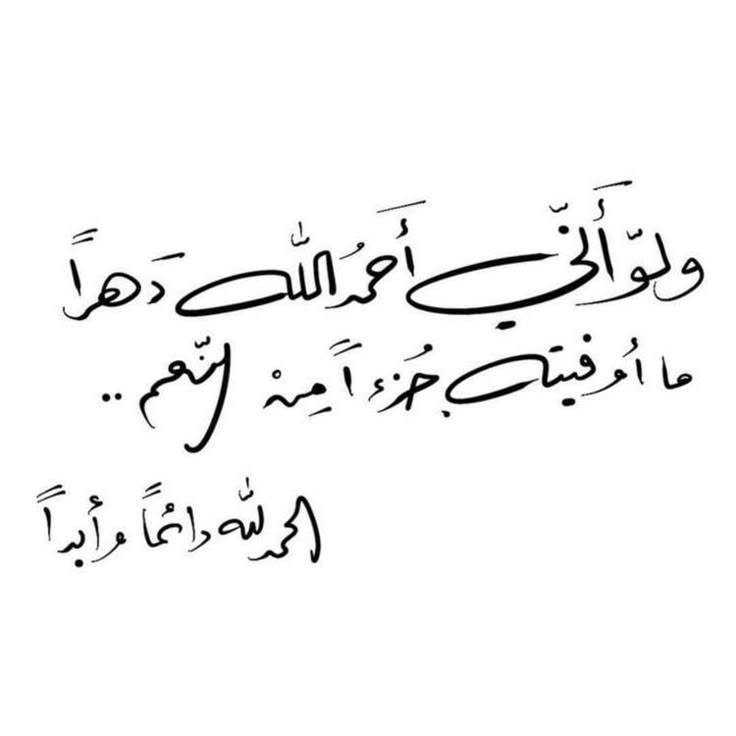 ولوّ أَنّي أَحمدُ اللّٰه دَهراً
ما أُوفيته جُزءاً مِنْ النّعم ..
الحمدلله دائماً وأبداً